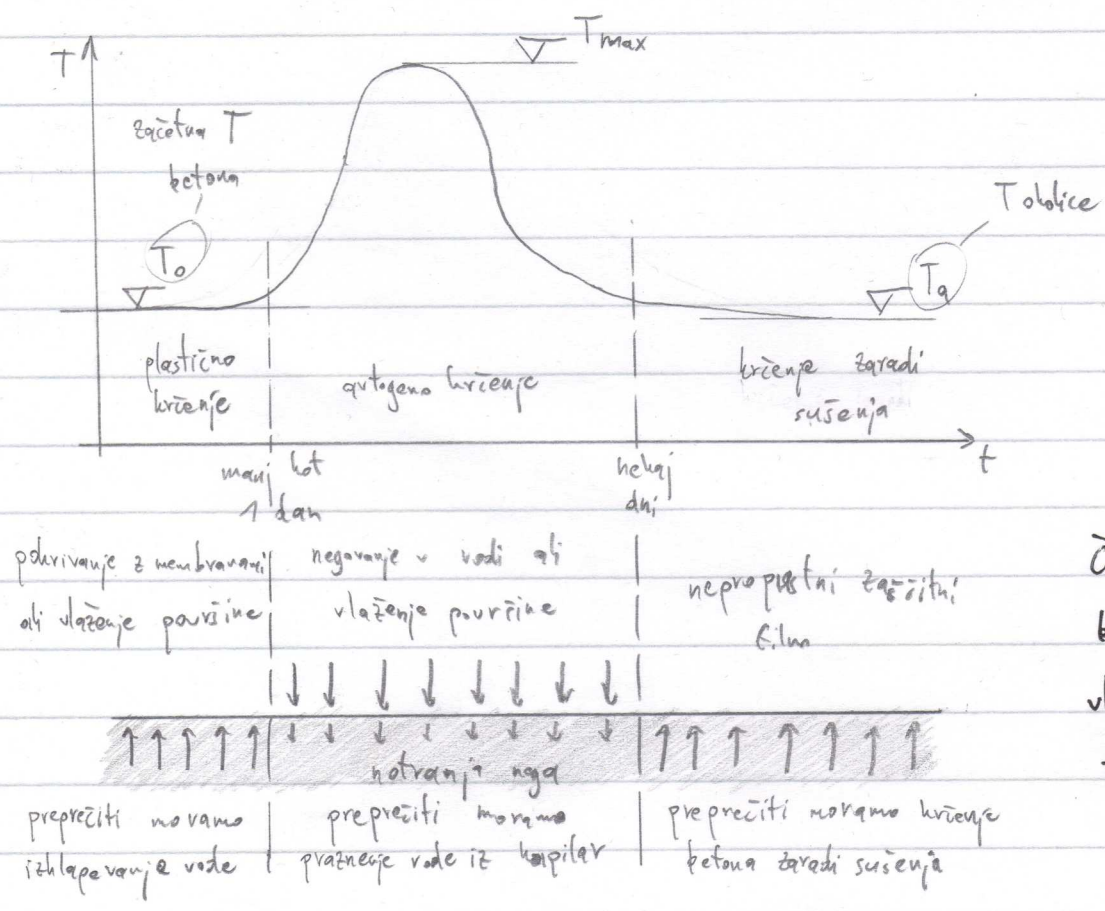 T
Tmax
začetna T
betona
T okolice
To
Ta
plastično
krčenje
avtogeno krčenje
krčenje zaradi
sušenja
t
manj kot
1 dan
nekaj
dni
pokrivanje z membranami
ali vlaženje površine
negovanje v vodi ali
vlaženje površine
neprepustni zaščitni
film
notranja nega
preprečiti moramo
izhlapevanje vode
preprečiti moramo
praznenje vode iz kapilar
preprečiti moramo krčenje
betona zaradi sušenja